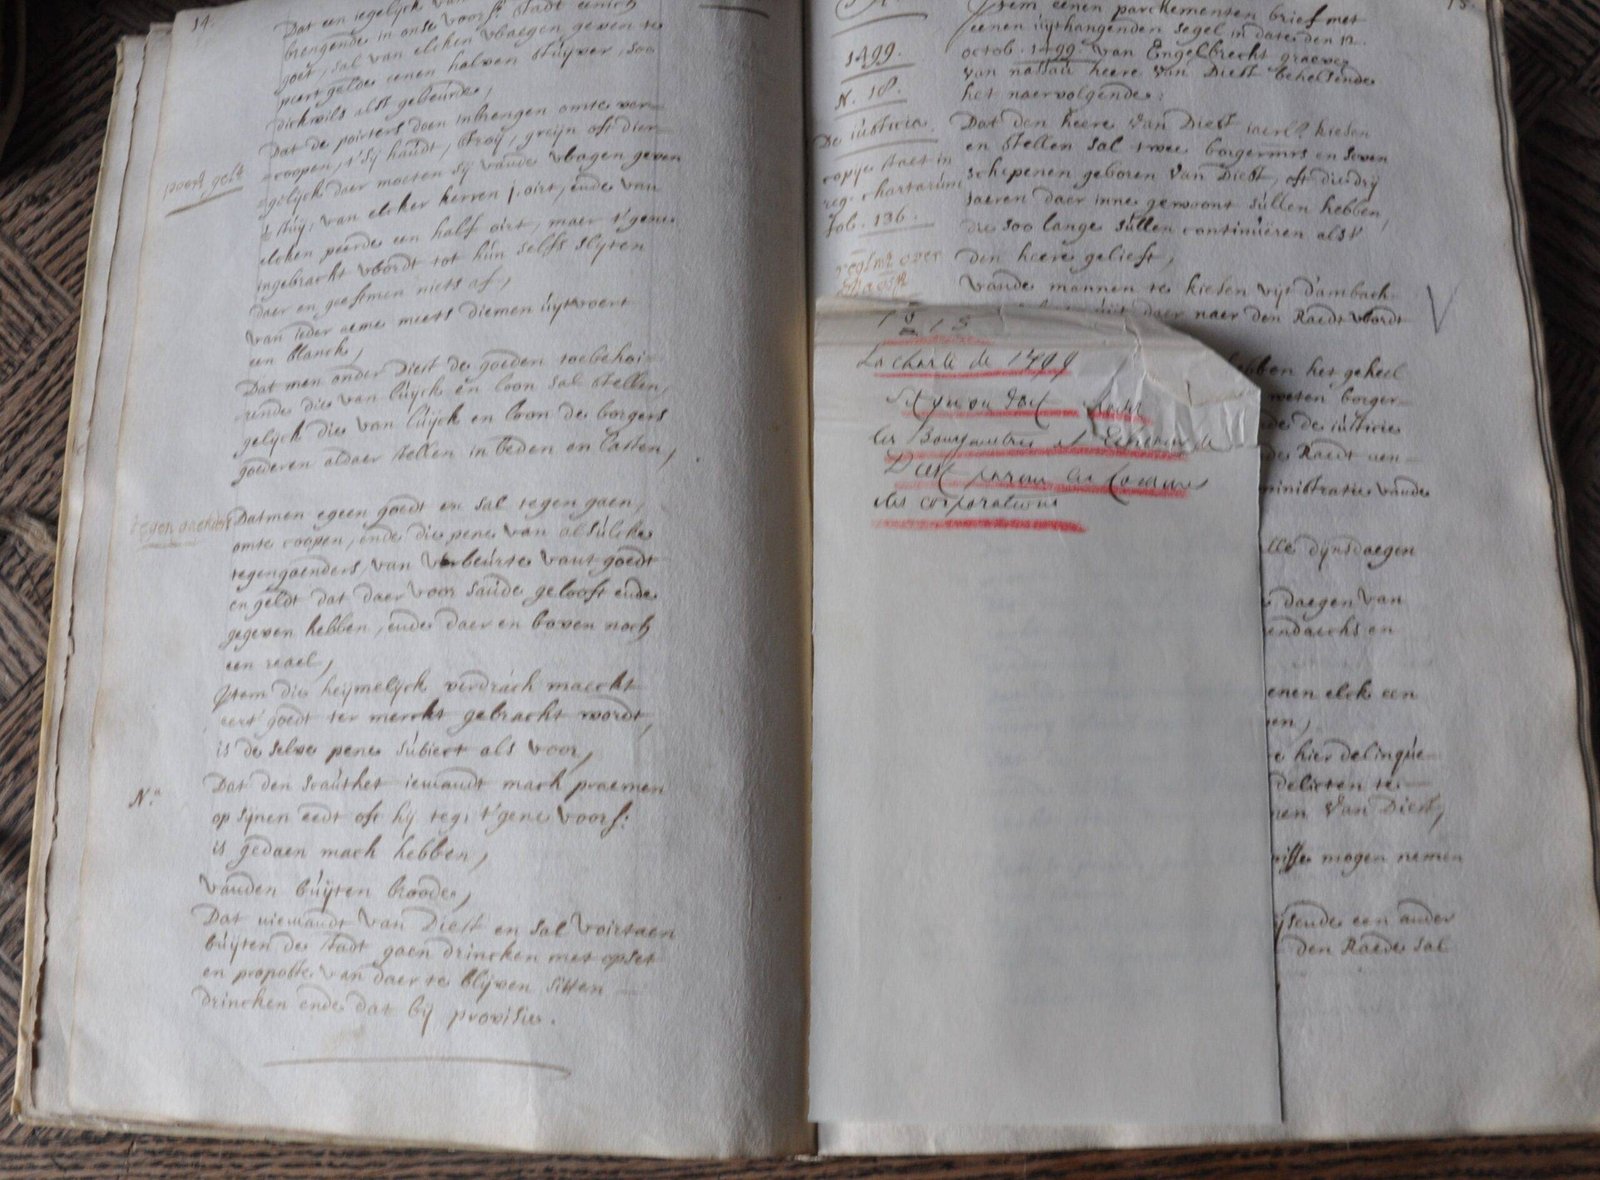 14.
Dat een iegelyck van
brengende in onse voors: stadt eenich
goet, sal van elcken waegen geven te
poert gelde eenen halven stuyver, soo
dickwils alst gebeurde,
poort gelt
Dat de poirters doen inbrengen omte ver=
=coopen, t'sy haudt, stroy, greijn oft dier=
=gelyck daer moeten sy vande wagen geven
½ stuy: van elcker kerren j. oirt, ende van
elcken peerde een half oirt, maer t'gene
ingebracht wordt tot hun selfs slyten
daer en geeftmen niets af,
Van ieder aeme meets diemen uytvoert
een blanck,
Dat men onder Diest de goeden toebehoi=
=rende die van luyck en loon sal stellen,
gelyck die van luyck en loon de borgers
goederen aldaer stellen in beden en lasten,
tegengaenders
Datmen egeen goedt en sal tegen gaen,
omte coopen, ende die pene van alsulcke
tegengaenders, van verbeurte vant goedt
en geldt dat daer voor saude gelooft ende
gegeven hebben, ende daer en boven noch
een reael,
Item die heymelyck verdrach maeckt
eert goedt ter merckt gebracht wordt,
is de selve pene subiect als voor,
N.a
Dat den scauthet iemandt mach praemen
op synen eedt oft hy tegen t'gene voors:
is gedaen mach hebben,
Vanden buyten broode,
Dat niemandt van Diest en sal voirtaen
buyten de stadt gaen drincken met opset
en proposte van daer te blyven sitten
drincken ende dat by provisie.
15.
Item eenen parckementen brief met
eenen uythangenden segel in date den 12
1499.
octob. 1499. van Engelbrecht graeve
van nassau heere van Diest behelsende
N. 18.
het naervolgende:
De iusticia.
copye staet in
reg. chartarum
fob. 136.
Dat den heere van Diest iaerl? kiesen
en stellen sal twee borgermrs en seven
schepenen geboren van Diest, oft die dry
iaeren daer inne gewoont sullen hebben,
die soo lange sullen continueren alst
den heere gelieft,
Vande mannen te kiesen uyt d'ambach=
daer naer den Raedt wordt
La charte de 1499
les Bourgmestres et Echevins de
Diest
des corporations
hebben het geheel
weten borger=
de iusticie
Raedt aen=
ministratie vande
alle dynsdaegen
daegen van
en
enen elck een
hier delinque=
delicten te
van Diest,
mogen nemen
een ander
den Raede sal